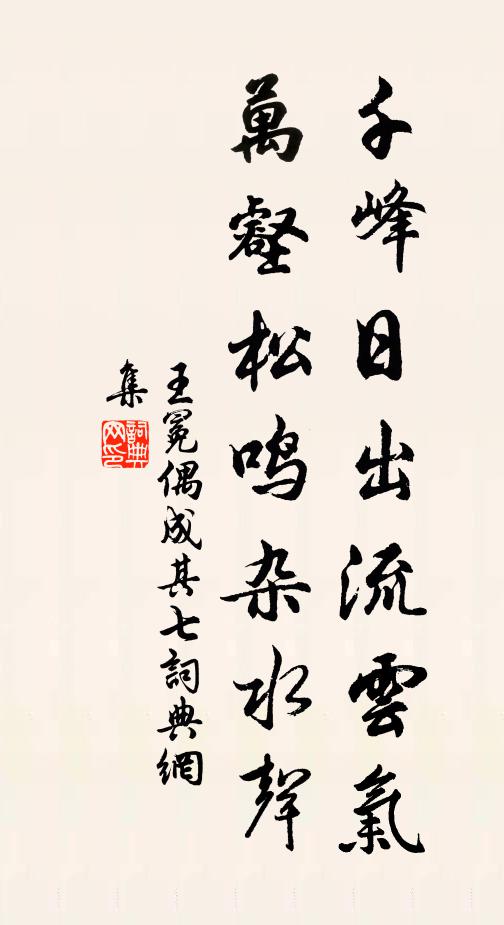 千峰日出流雲氣
萬壑松鳴杂水聲
王冕偶成其七詞典網
集
詞典网印